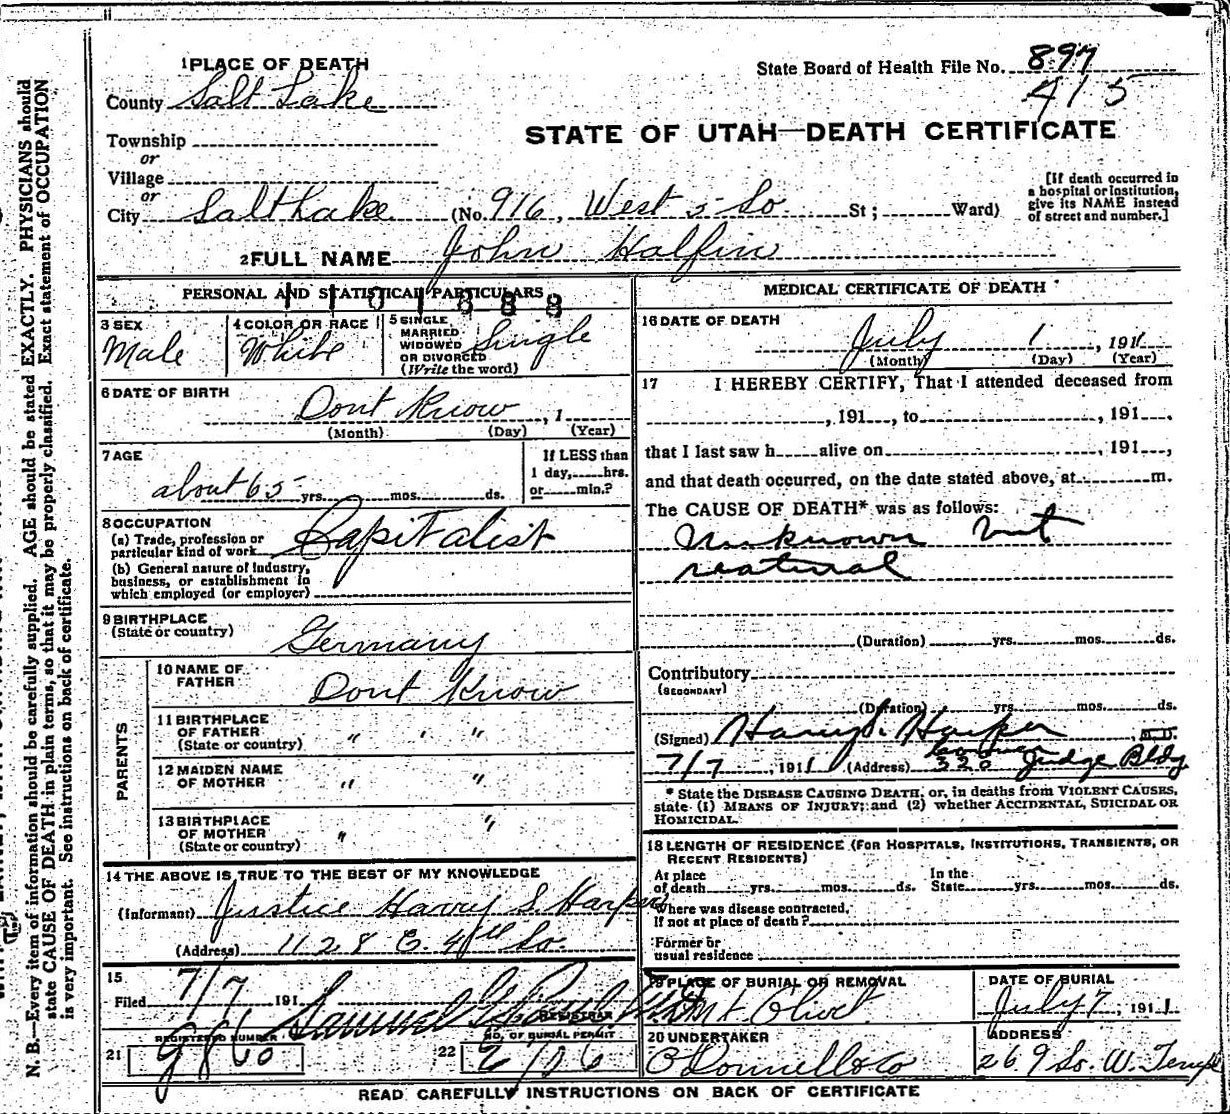 N. B.—Every item of information should be carefully supplied. AGE should be stated EXACTLY. PHYSICIANS should
state CAUSE OF DEATH in plain terms, so that it may be properly classified. Exact statement of OCCUPATION
is very important. See instructions on back of certificate.
1 PLACE OF DEATH
County Salt Lake
Township
or
Village
or
City Salt Lake (No. 916, West 5 So St; Ward)
State Board of Health File No. 897
415
STATE OF UTAH—DEATH CERTIFICATE
[If death occurred in
a hospital or institution,
give its NAME instead
of street and number.]
2 FULL NAME John Halfin
PERSONAL AND STATISTICAL PARTICULARS
1101888
3 SEX
Male
4 COLOR OR RACE
White
5 SINGLE
MARRIED
WIDOWED
OR DIVORCED
(Write the word)
Single
6 DATE OF BIRTH
Dont Know, 1
(Month) (Day) (Year)
7 AGE
about 65 yrs. mos. ds.
If LESS than
1 day, hrs.
or min.?
8 OCCUPATION
(a) Trade, profession or
particular kind of work
Capitalist
(b) General nature of industry,
business, or establishment in
which employed (or employer)
9 BIRTHPLACE
(State or country)
Germany
PARENTS
10 NAME OF
FATHER
Dont Know
11 BIRTHPLACE
OF FATHER
(State or country)
" " "
12 MAIDEN NAME
OF MOTHER
" "
13 BIRTHPLACE
OF MOTHER
(State or country)
" "
14 THE ABOVE IS TRUE TO THE BEST OF MY KNOWLEDGE
(Informant) Justice Harry S. Harper
(Address) 1128 E. 4th So.
15
Filed 7/7 191 Samuel
REGISTRAR
21 REGISTERED NUMBER
22 NO. OF BURIAL PERMIT
MEDICAL CERTIFICATE OF DEATH
16 DATE OF DEATH
July 1, 1911
(Month) (Day) (Year)
17 I HEREBY CERTIFY, That I attended deceased from
, 191 , to , 191 .
that I last saw h alive on 191 ,
and that death occurred, on the date stated above, at m.
The CAUSE OF DEATH* was as follows:
Unknown but
natural
(Duration) yrs. mos. ds.
Contributory
(SECONDARY)
(Duration) yrs. mos. ds.
(Signed) Harry S. Harper, M. D.
Coroner
7/7, 1911 (Address) 320 Judge Bldg
* State the DISEASE CAUSING DEATH, or, in deaths from VIOLENT CAUSES,
state (1) MEANS OF INJURY; and (2) whether ACCIDENTAL, SUICIDAL OR
HOMICIDAL.
18 LENGTH OF RESIDENCE (FOR HOSPITALS, INSTITUTIONS, TRANSIENTS, OR
RECENT RESIDENTS)
At place
of death yrs. mos. ds.
In the
State yrs. mos. ds.
Where was disease contracted,
If not at place of death?
Former or
usual residence
19 PLACE OF BURIAL OR REMOVAL
Mt Olivet
DATE OF BURIAL
July 7, 1911
20 UNDERTAKER
O'Donnell & Co
ADDRESS
269 So. W. Temple
READ CAREFULLY INSTRUCTIONS ON BACK OF CERTIFICATE